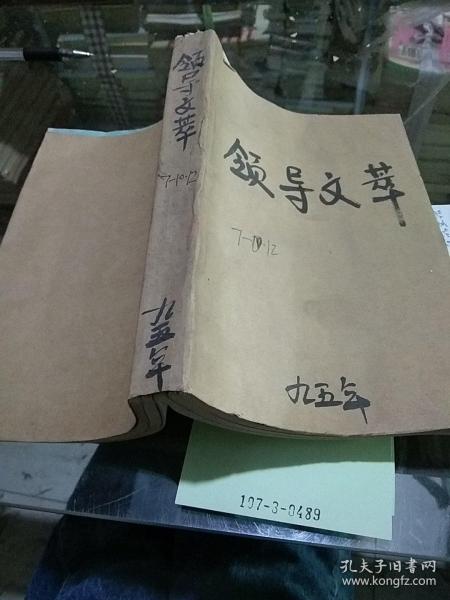 领导文萃
7-10.12
九五年
领导文萃
7-10.12
九五年
107-3-0489
孔夫子旧书网
www.kongfz.com